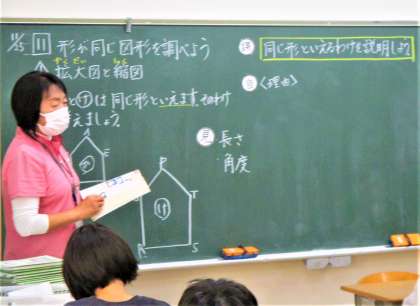 11/25 11 形が同じ図形を調べよう
かくだい しゅく
拡大図と縮図
と㋘は同じ形といえます。そのわけ
えましょう。
㋐
E
㋘
P
T
S
R
同じ形といえるわけを説明しよう
〈理由〉
見 長さ
角度